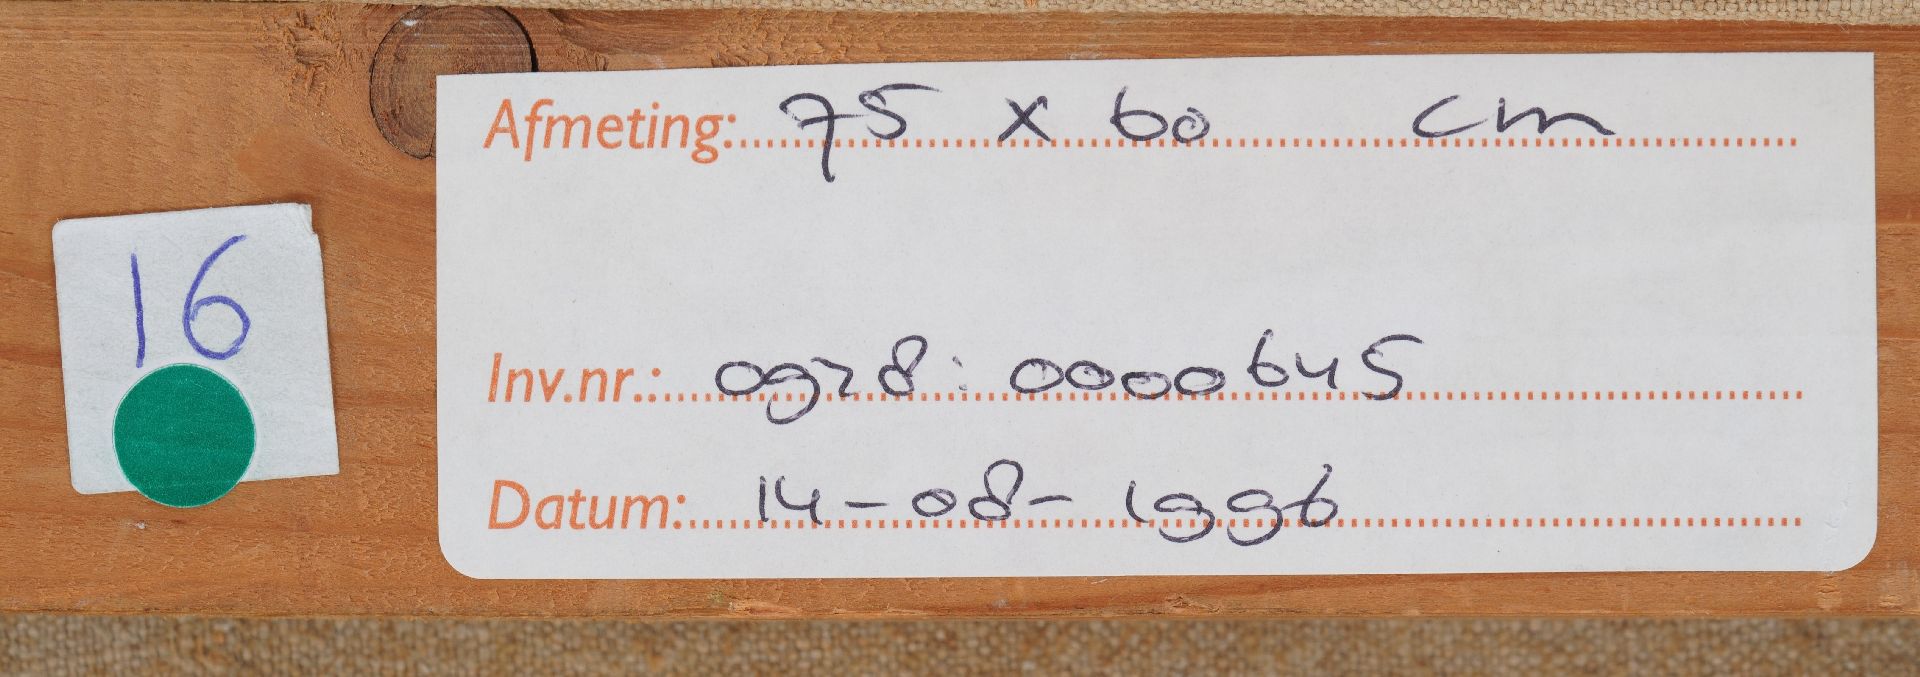 16
Afmeting: 75 x 60 cm
Inv.nr.: 0928: 0000645
Datum: 14-08-1996